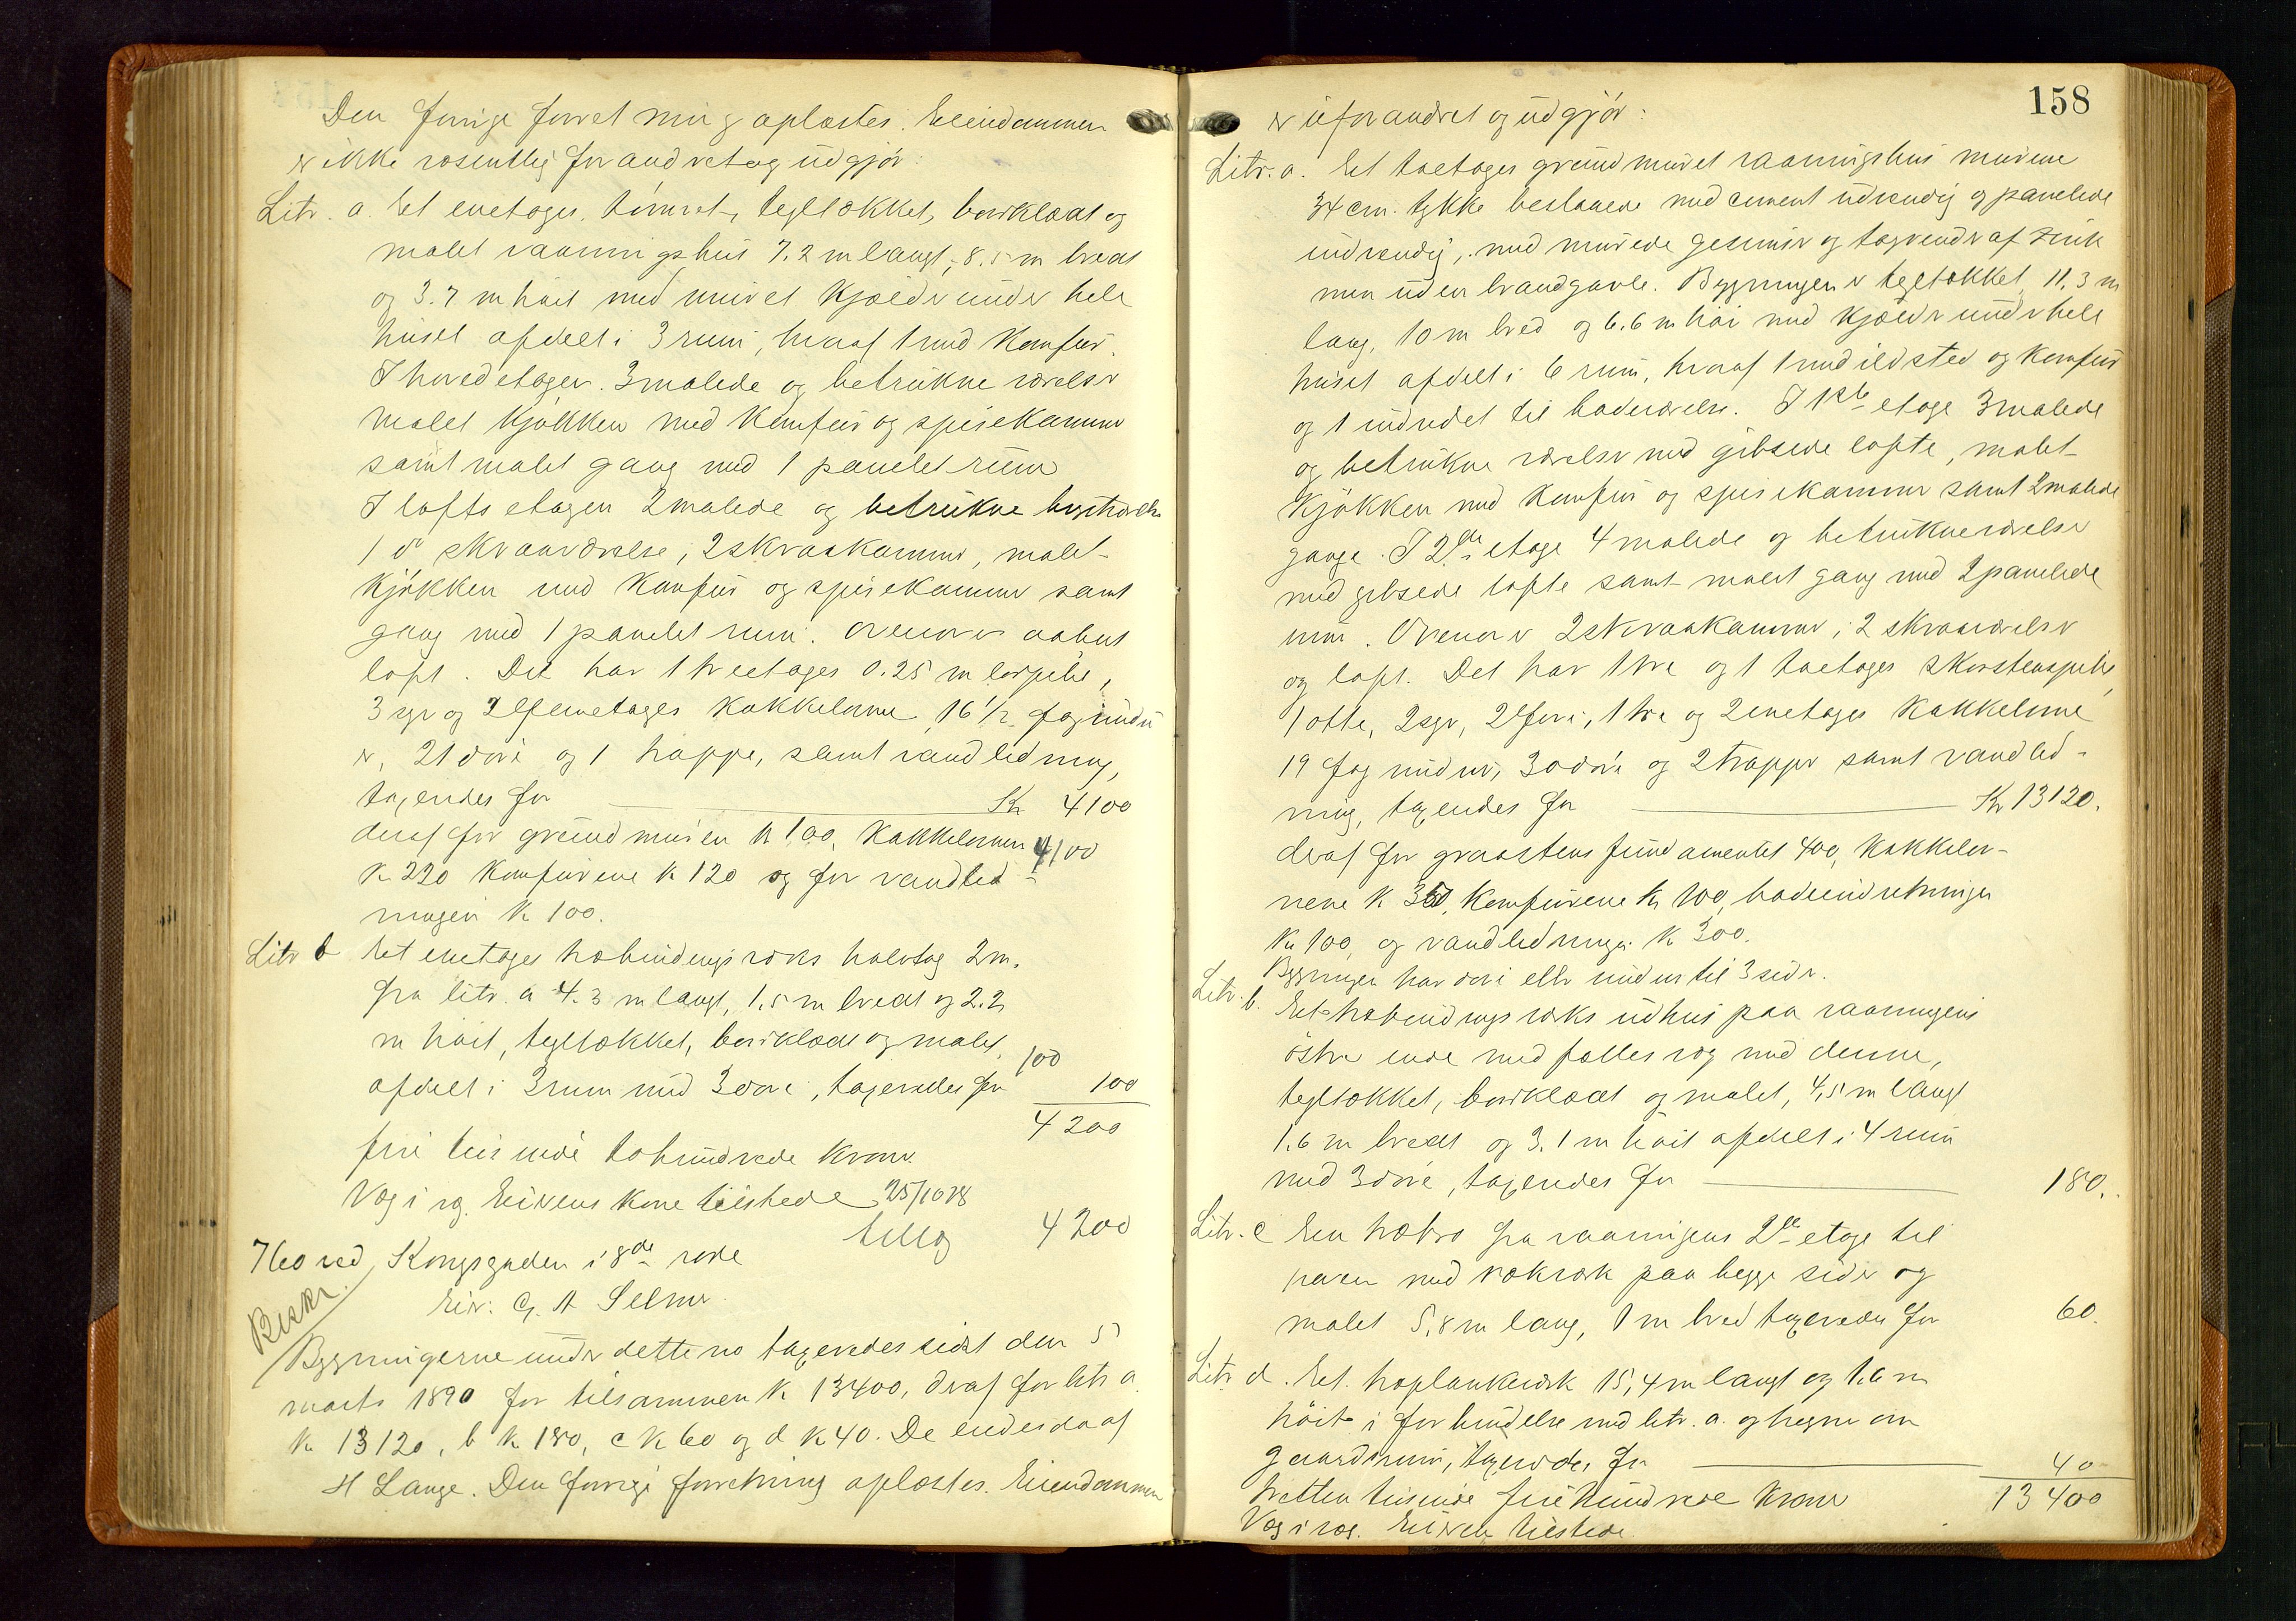 Den forrige forretning oplæstes. Eiendommen
er ikke væsentlig forandret og udgjør:
Litr. a. Et enetages, tømret, tegltækket, bordklædt og
malet vaaningshus 7.2 m langt, 8.5 m bredt
og 3.7 m høit med muret kjælder under hele
huset afdelt i 3 rum, hvoraf 1 med komfur.
I hovedetagen 3 malede og betrukne værelser
malet kjøkken med komfur og spisekammer
samt malet gang med 1 panelet rum
I loftsetagen 2 malede og betrukne
1 do skraaværelse, 2 skraakammer, malet
kjøkken med komfur og spisekammer samt
gang med 1 panelet rum. Ovenover aabent
loft. Det har 1 treetages 0.25 m
3 og enetages kakkelovne, 16 1/2 fag vindu
er, 21 døre og 1 trappe, samt vandledning,
taxeredes for Kr 4100
deraf for grundmuren k 100, kakkelovnen 4100
k 220 komfurene k 120 og for vandled-
ningen k 100.
Litr b Et enetages træbindingsværks halvtag 2 m.
fra litr. a 4.3 m langt, 1.5 m bredt og 2.2
m høit, tegltækket, bordklædt og malet,
afdelt i 3 rum med 3 døre, taxeredes for 100 100
4200
fire tusinde tohundrede kroner.
Væg i væg. Eierens kone tilstede 25/10 18
4200
760 ved Kongsgaden i 8de rode
Beskr. Eier: G. A Selmer
Bygningerne under dette no taxeredes sidst den 5
marts 1890 for tilsammen k 13400, deraf for litr a.
k 13120, b k 180, c k 60 og d k 40. De eiedes da af
H Lange. Den forrige forretning oplæstes. Eiendommen
158
er uforandret og udgjør:
Litr. a. Et toetages grundmuret vaaningshus murene
34 cm. tykke beslagne med cement udvendig og panelede
indvendig, med murede gesimser og tagrender af zink
men uden brandgavle. Bygningen er tegltækket, 11.3 m
lang, 10 m bred og 6.6 m høi med kjælder under hele
huset afdelt i 6 rum, hvoraf 1 med ildsted og komfur
og 1 indredet til badeværelse. I 1ste etage 3 malede
og betrukne værelser med gibsede lofte, malet
kjøkken med komfur og spisekammer samt 2 malede
gange. I 2den etage 4 malede og betrukne værelser
med gibsede lofte samt malet gang med 2 panelede
rum. Ovenover 2 skraakammer, 2 skraaværelser
og loft. Det har 1 tre og 1 toetages skorstenspibe,
1 otte, 2 sex, 2 fire, 1 tre og 2 enetages kakkelovne
19 fag vinduer, 30 døre og 2 trapper samt vandled-
ning, taxeredes for Kr 13120.
deraf for graastens fundamentet 400, kakkelov-
nene k 350, komfurene kr 100, badeindretningen
kr 100, og vandledningen k 300.
Bygningen har døre eller vinduer til 3 sider.
Litr. b. Et træbindingsværks udhus paa vaaningens
østre ende med fælles væg med denne,
tegltækket, bordklædt og malet, 4,5 m langt
1.6 m bredt og 3.1 m høit afdelt i 4 rum
med 3 døre, taxeredes for 180.
Litr. c En træbro fra vaaningens 2den etage til
haven med rækværk paa begge sider og
malet 5,8 m lang, 1 m bred taxeredes for 60.
Litr d. Et træplankeværk 15,4 m langt og 1.6 m
høit i forbindelse med litr. a. og hegner om
gaardsrum, taxeredes for 40
tretten tusinde firehundrede kroner 13400
Væg i væg. Eieren tilstede